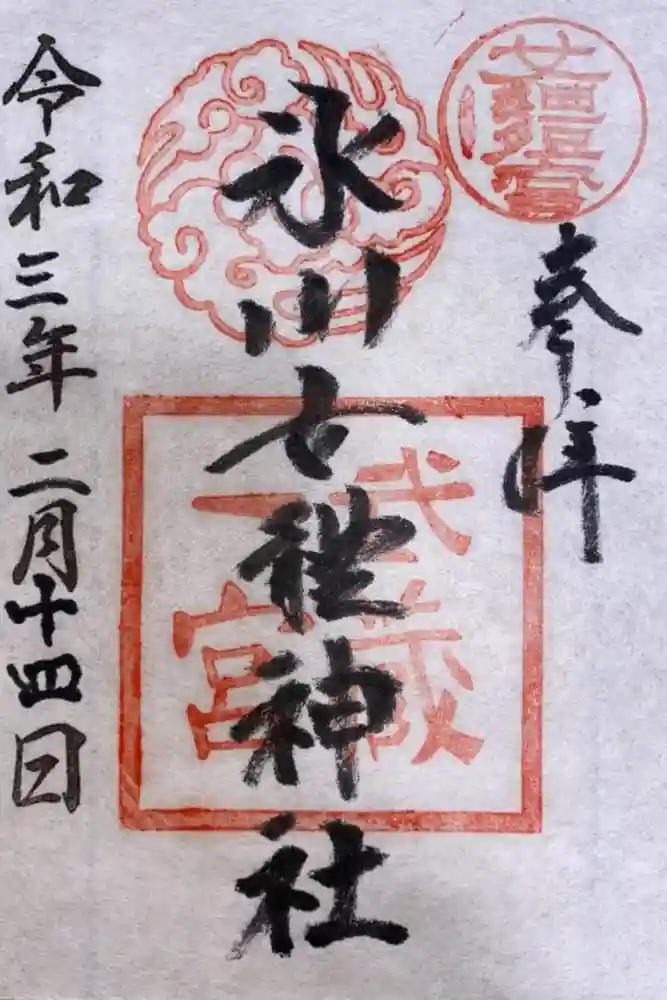 参拝
氷川女體神社
武蔵
一宮
令和三年二月十四日